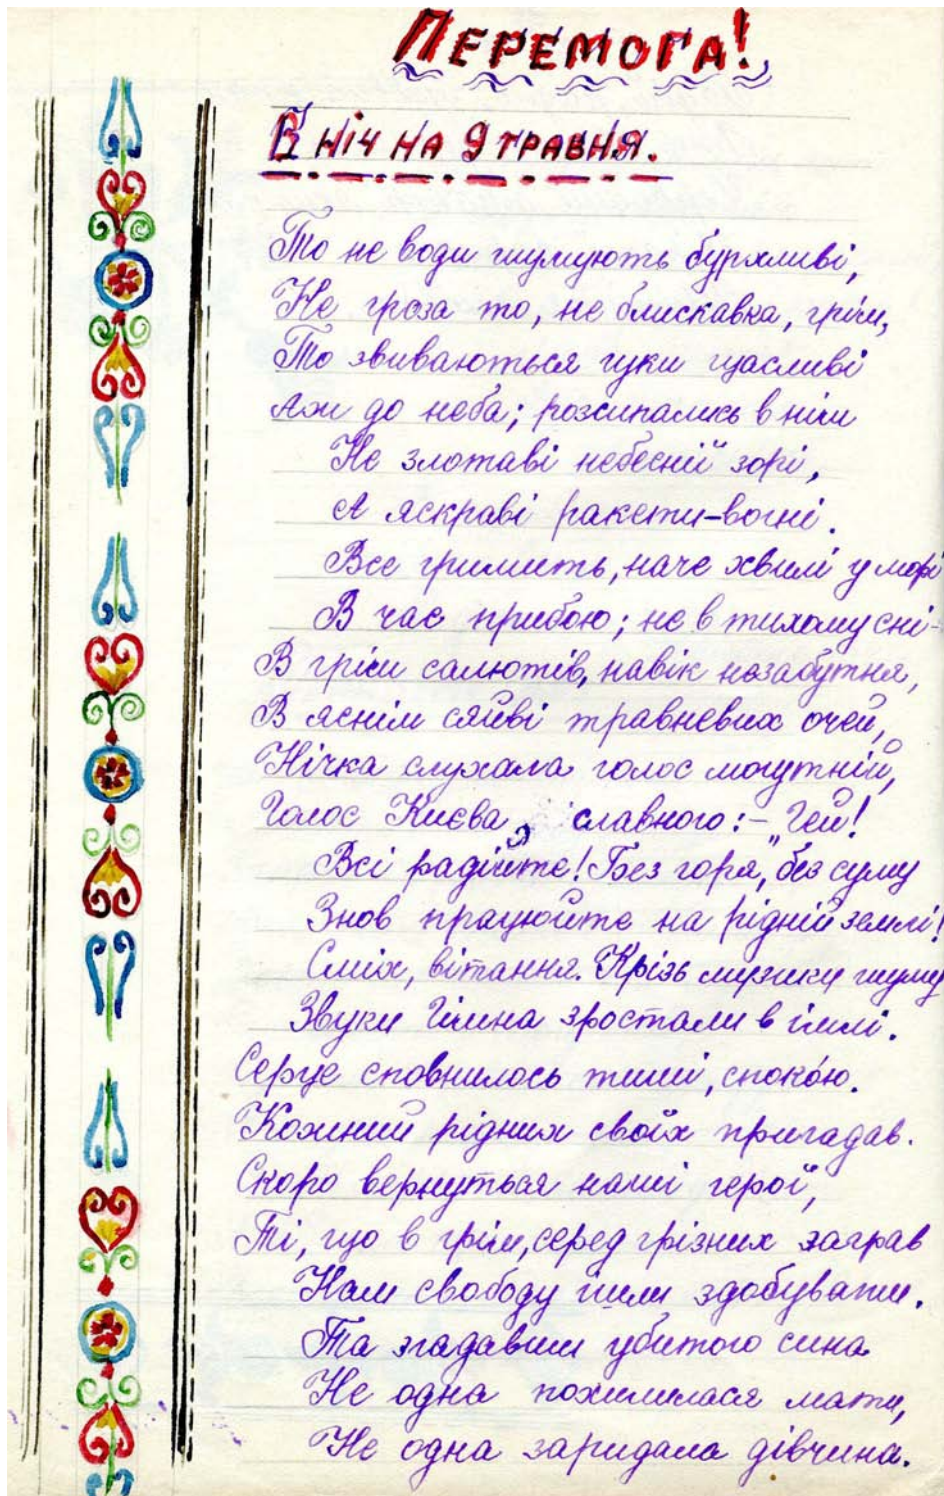 Перемога!
В ніч на 9 травня.
То не води шумують бурхливі,
Не гроза то, не блискавка, грім,
То звиваються гуки щасливі
Аж до неба; розсипались в нім
Не злотаві небеснії зорі,
А яскраві ракети-вогні.
Все гримить, наче хвилі у морі
В час прибою; не в тихому сні -
В грім салютів, навік незабутня,
В яснім сяйві травневих очей,
Нічка слухала голос могутній,
Голос Києва, славного: - „Гей!
Всі радійте! Без горя, без суму
Знов працюйте на рідній землі!"
Сміх, вітання. Крізь музики шуму
Звуки Гімна зростали в імлі.
Серце сповнилось тиші, спокою.
Кожний рідних своїх пригадав.
Скоро вернуться наші герої,
Ті, що в грім, серед грізних заграв
Нам свободу йшли здобувати.
Та згадавши убитого сина
Не одна похилилася мати,
Не одна заридала дівчина.